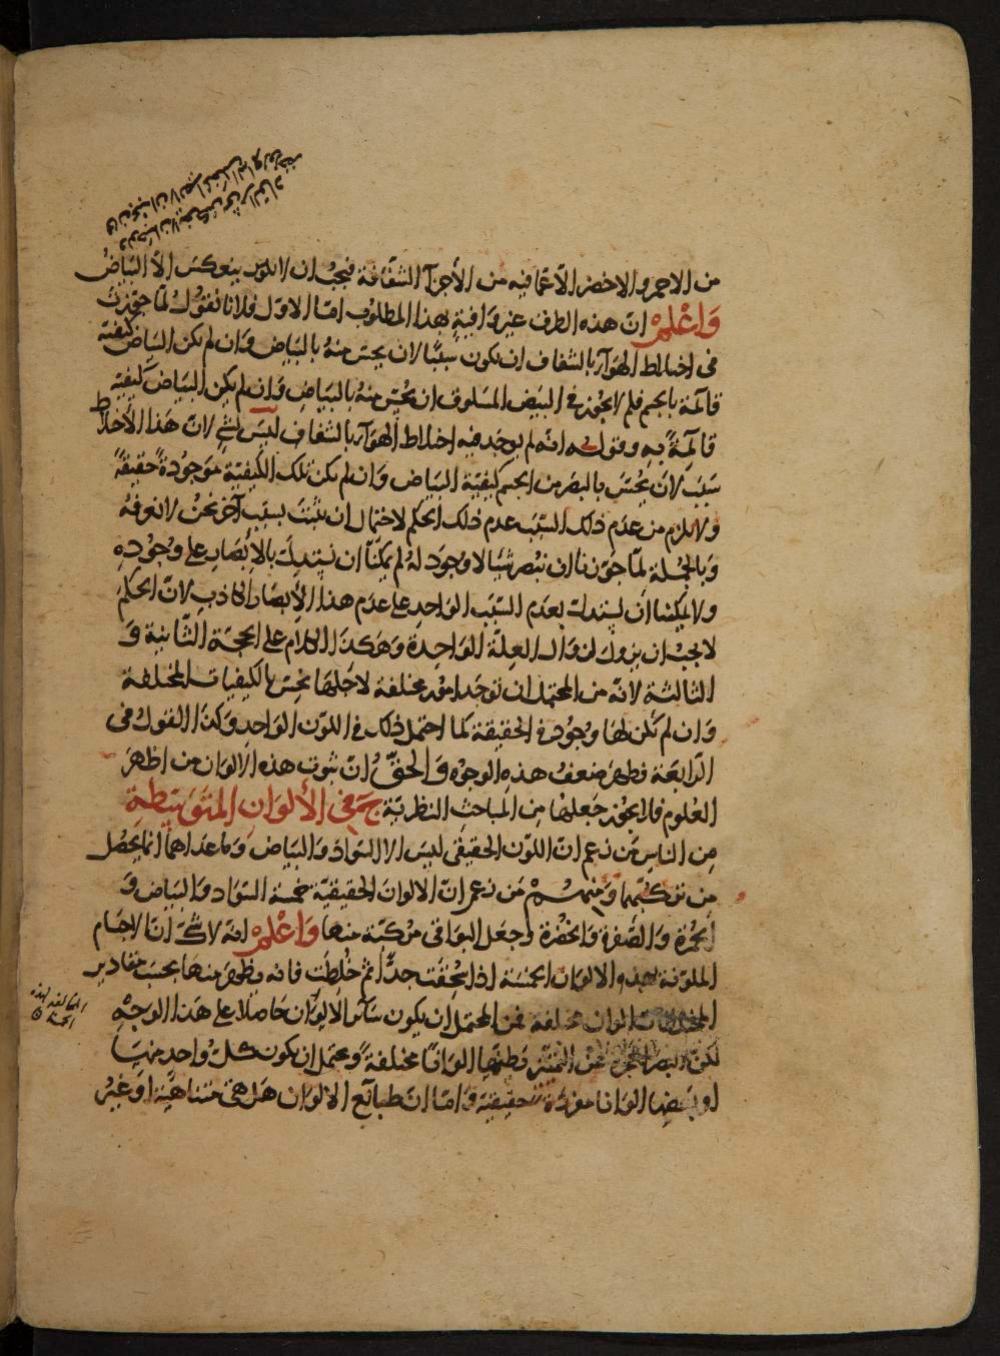 من الاحمر والاخضر الا عما فيه من الأجزآء الشفافة فيجب ان لا يكون ينعكس الا البياض
وَاعْلَمْ ان هذه الطرق غير وافية بهذا المطلوب امّا الاوّل فلانا نقول لمّا جوّزت
فى اختلاط الهوآء بالشفاف ان يكون سببًا لان يحس منهُ بالبياض وان لم يكن البياض كيفية
قائمة بالجسم فلم لا يجوز فى البيض المسلوق ان يُحس منهُ بالبياض وان لم يكن البياض كيفية
قائمةً به وقوله انه لم يوجد فيه اختلاط الهوآء بالشفاف ليس بشئ لانّ هذا الاختلاط
سبب لان يُحسّ بالبصر من الجسم كيفية البياض وان لم يكن تلك الكيفية موجودة حقيقةً
ولا يلزم من عدم ذلك السّبب عدم ذلك الحكم لاحتمال ان يثبت بسبب آخر نحن لا نعرفهُ
وبالجملة لمّا جوّزنا ان نبصر شيئا لا وجود لهُ لم يمكنّا ان نستدلّ بالابصار على وجوده
ولا يمكننا ان نستدل بعدم السّبب الواحد على عدم هذا الابصار الكاذب لانّ الحكم
لا يجب ان يزول لزوال العلّة الواحدة وهكذا الكلام على الحجة الثانية و
الثالثة لانّه من المحتمل ان توجد امور مختلفة لاجلها نحس بالكيفيات المختلفة
وان لم تكن لها وجود فى الحقيقة كما احتمل ذلك فى اللون الواحد وكذا القول فى
الرّابعة فظهر ضعف هذه الوجوه والحقُّ انّ ثبوت هذه الالوان من اظهر
العلوم فلا يجوز جعلها من المباحث النظرية جَ فى الألوان المتوسّطة
من الناس من زعم انّ اللون الحقيقى ليس الا السّواد والبياض وما عداهما انما يحصل
من تركبهما ومنهم من زعم انّ الالوان الحقيقيّة خمسة السّواد والبياض و
الحمرة والصفرة والخضرة وجعل البواقى مركّبة منها وَاعْلَمْ انه لا شك انّ الاجسام
الملوّنة بهذه الالوان الخمسة اذا سُحقت جدًّا ثم خُلطت فانه يظهر منها بحسب مقادير
المختلطات الوان مختلفة فمن المحتمل ان يكون سائر الالوان حاصلا على هذا الوجه
لكن البصر لعجزه عن التميّز يظنّها الوانًا مختلفةً ويحتمل ان يكون كلّ واحد منها
او بعضها الوانا مفردة حقيقية وامّا انّ طبائع الالوان هل هى متناهية او غير